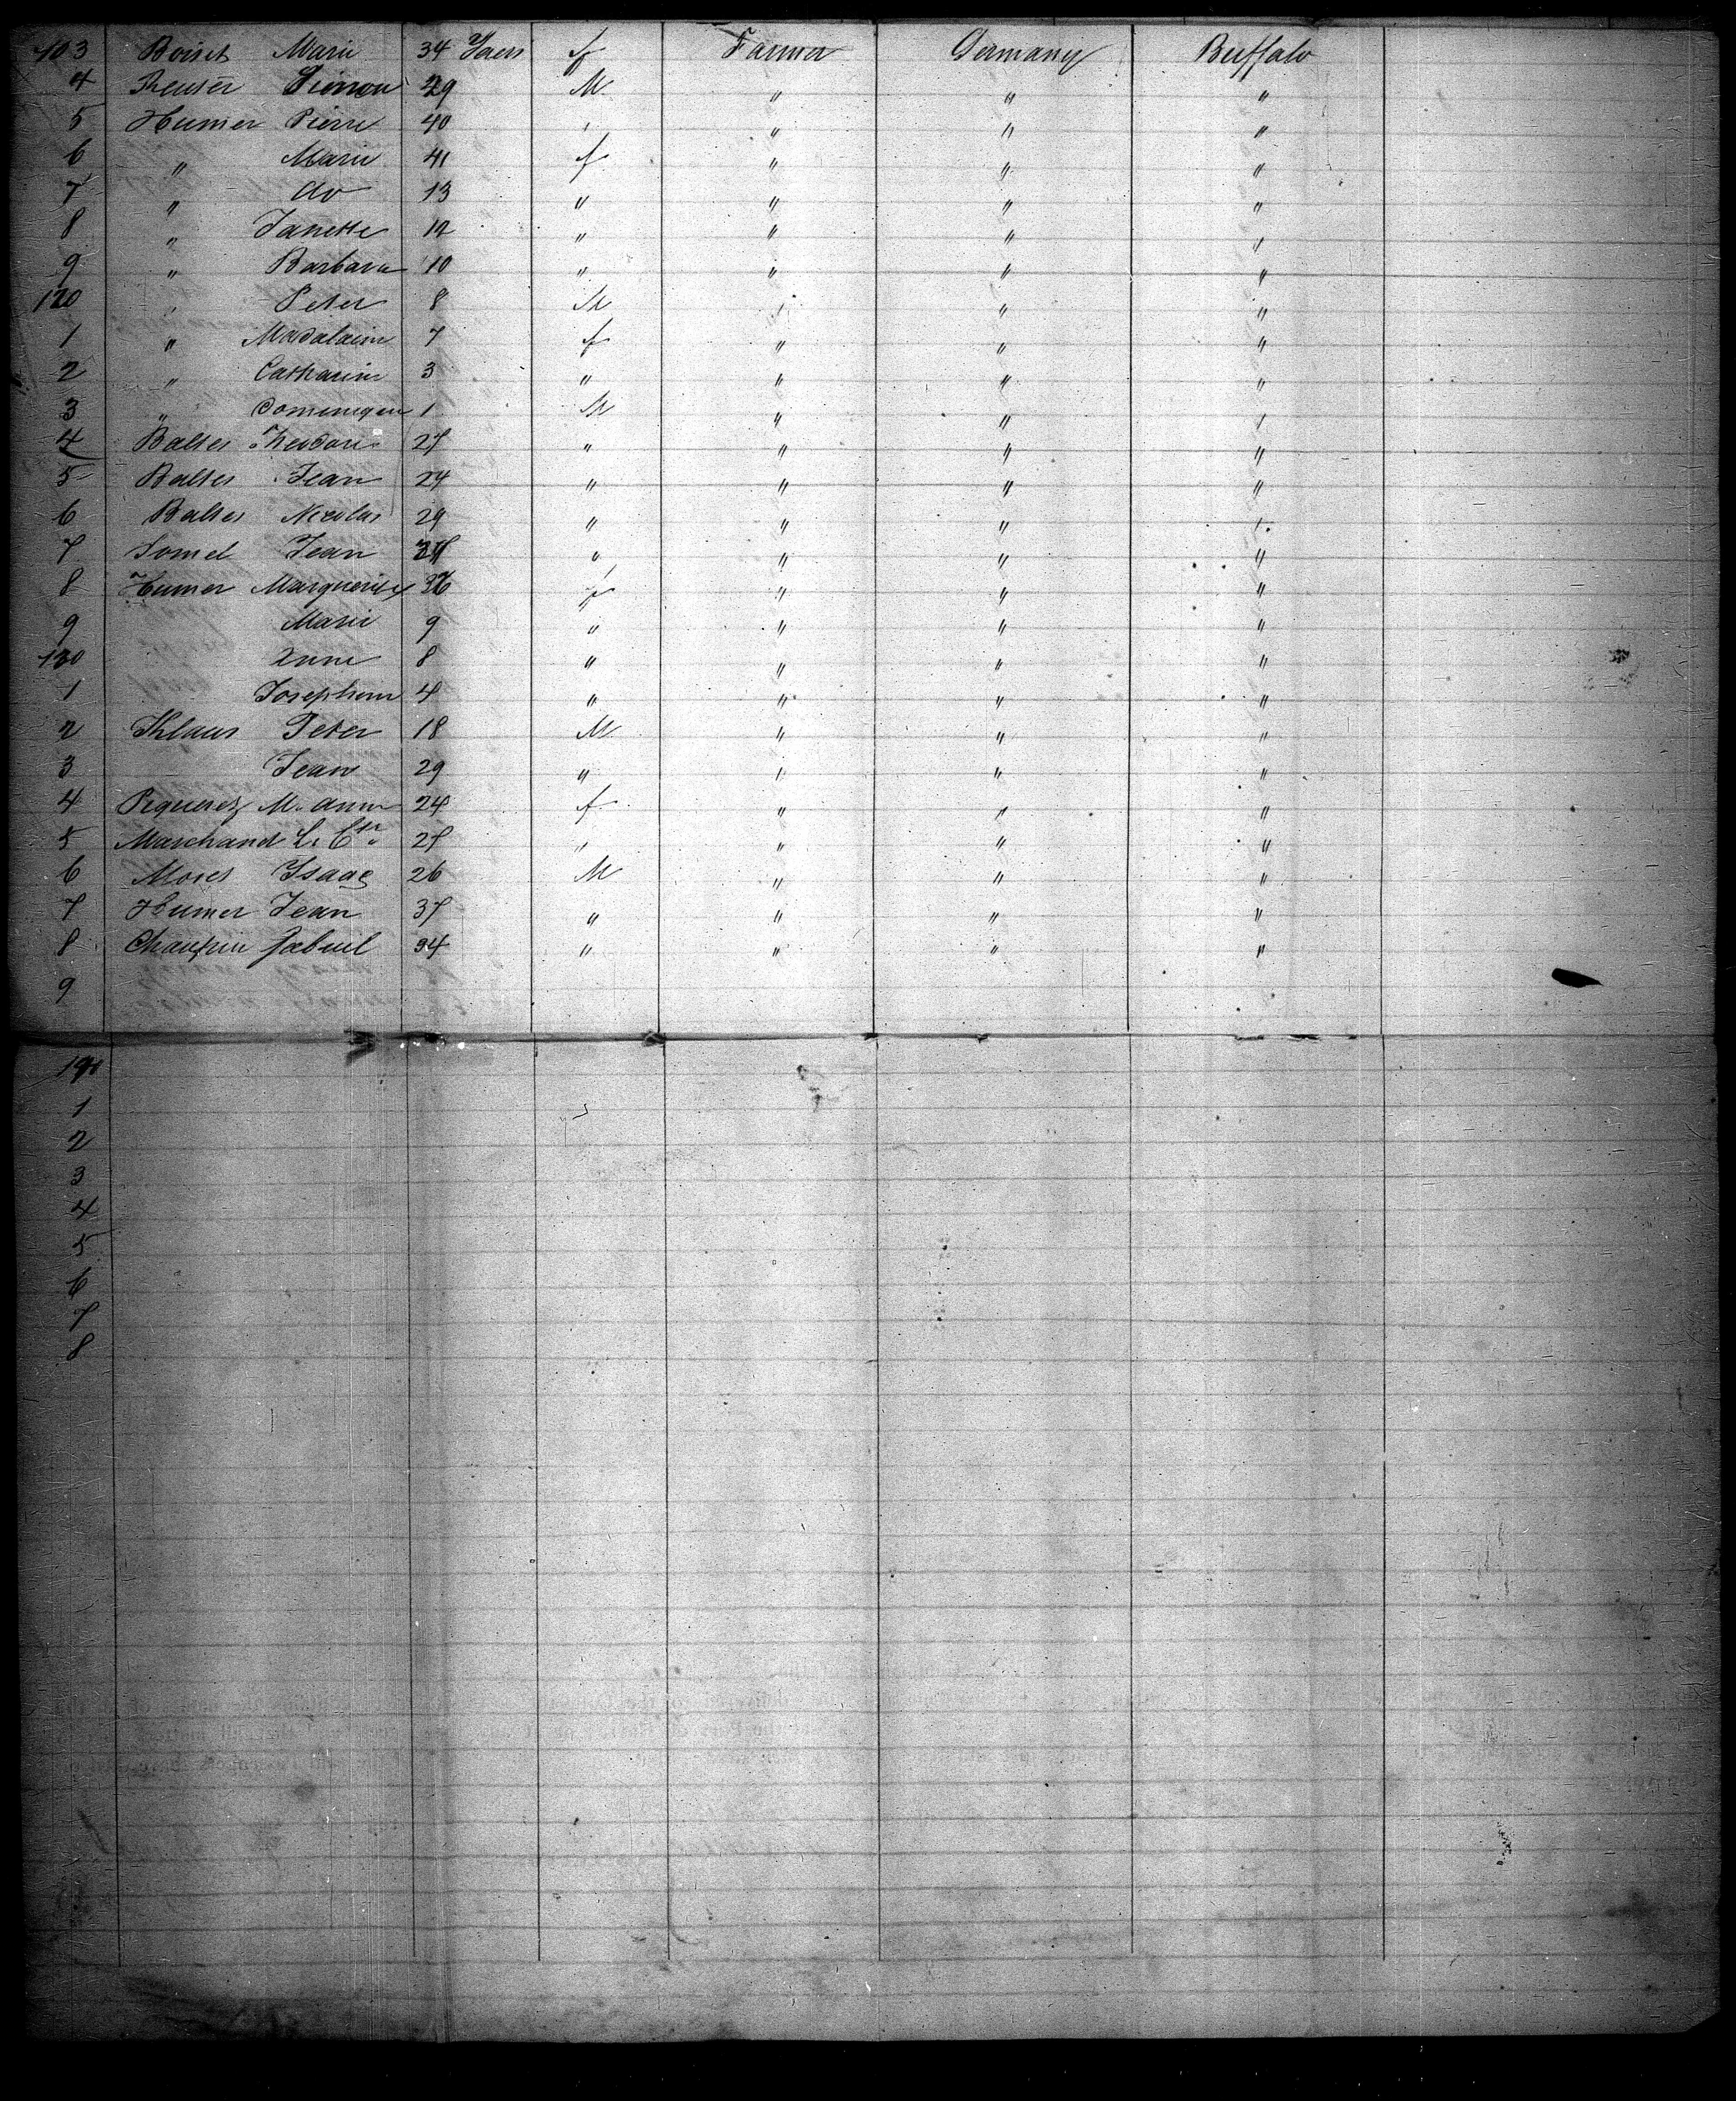 103 Boiset Marie 34 Years f Farmer Germany Buffalo
4 Reuter Simon 29 M " " "
5 Humer Pierre 40 " " " "
6 " Marie 41 f " " "
7 " do 13 " " " "
8 " Janette 12 " " " "
9 " Barbara 10 " " " "
120 " Peter 8 M " " "
1 " Madalaine 7 f " " "
2 " Catharine 3 " " " "
3 " Dominique 1 M " " "
4 Baltes Theodore 27 " " " "
5 Baltes Jean 24 " " " "
6 Baltes Nicolas 29 " " " "
7 Somel Jean " " " "
8 Humer Marguerite 36 f " " "
9 Marie 9 " " " "
130 Anne 8 " " " "
1 Josephine 4 " " " "
2 Khlaus Peter 18 M " " "
3 Jean 29 " " " "
4 Pequerez M. Anne 24 f " " "
5 Marchand 27 " " " "
6 Moses Isaac 26 M " " "
7 Humer Jean 37 " " " "
8 Gabriel 34 " " " "
9
140
1
2
3
4
5
6
7
8